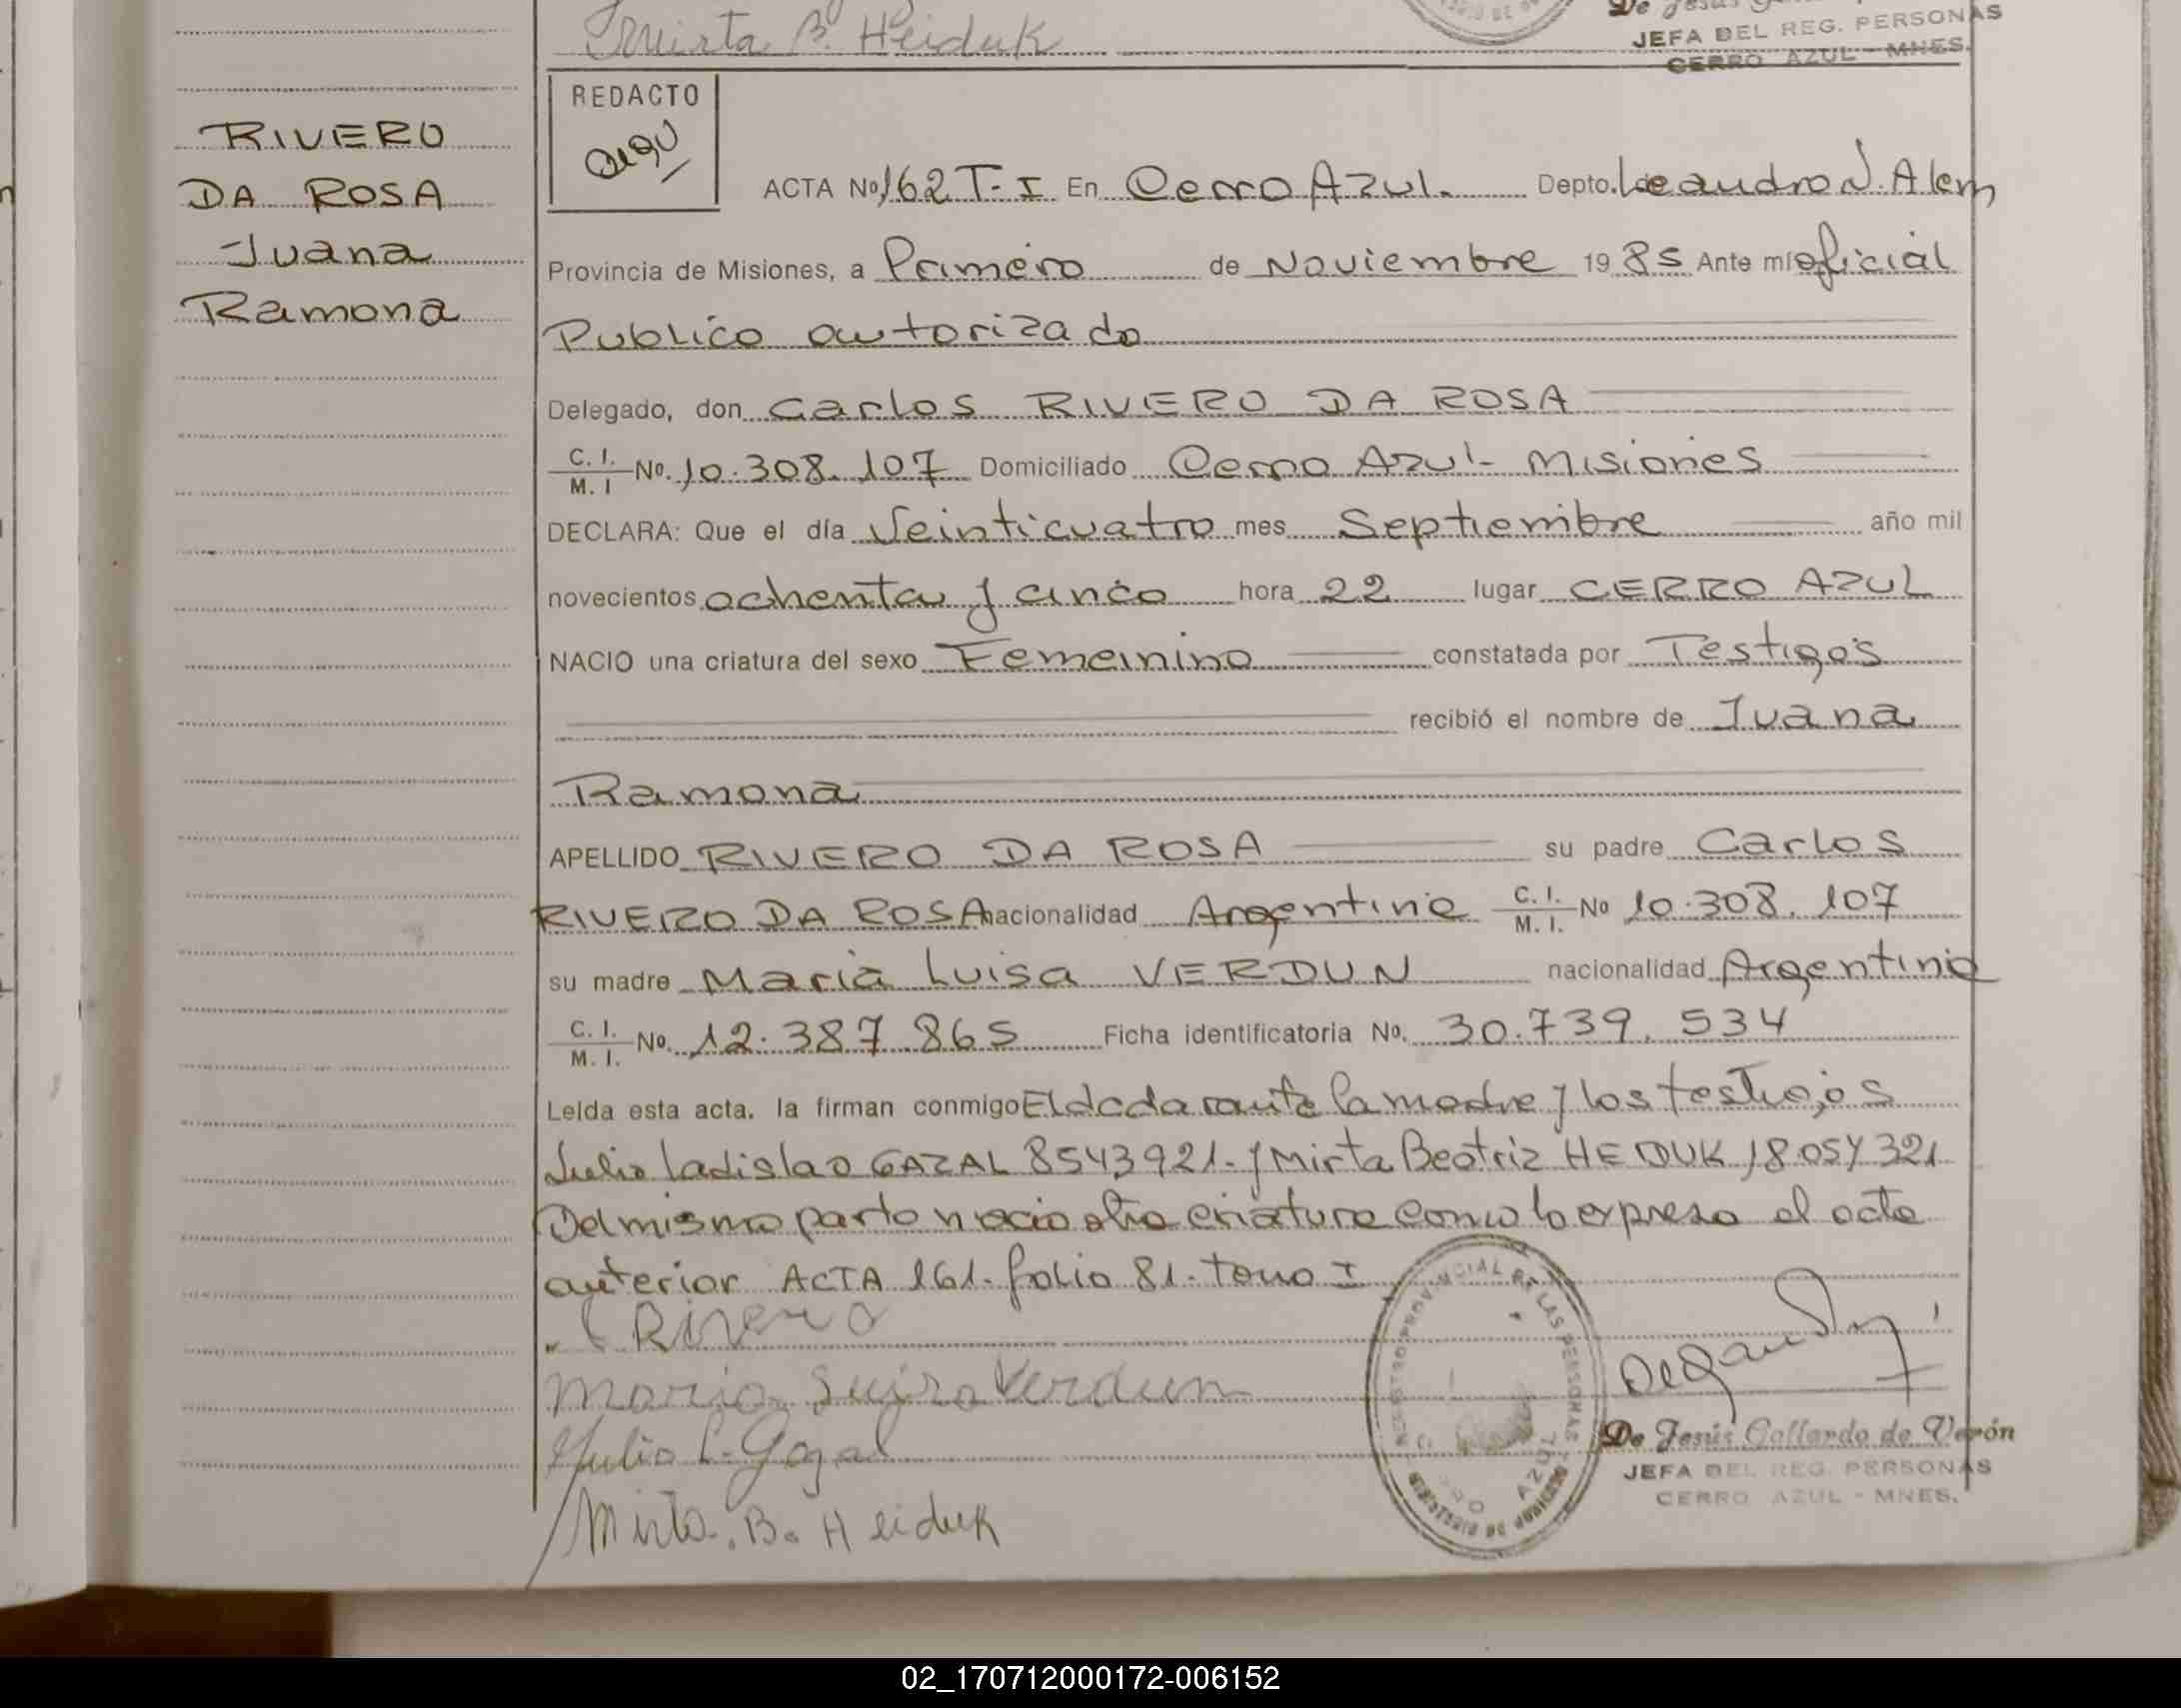 Mirta B. Heiduk
JEFA DEL REG. PERSONAS
CERRO AZUL - MNES.
RIVERO
DA ROSA
Juana
Ramona
REDACTO
ACTA Nº 162 T-I En Cerro Azul. Depto. Leandro N. Alem
Provincia de Misiones, a Primero de Noviembre 19 85 Ante mi oficial
Publico autorizado
Delegado, don Carlos RIVERO DA ROSA
C. I. M. I Nº. 10.308.107 Domiciliado Cerro Azul - Misiones
DECLARA: Que el día Veinticuatro mes Septiembre año mil
novecientos ochenta y cinco hora 22 lugar CERRO AZUL
NACIO una criatura del sexo Femenino constatada por Testigos
recibió el nombre de Juana
Ramona
APELLIDO RIVERO DA ROSA su padre Carlos
RIVERO DA ROSA nacionalidad Argentina C. I. M. I. Nº 10.308.107
su madre Maria Luisa VERDUN nacionalidad Argentina
C. I. M. I. Nº. 12.387 865 Ficha identificatoria No. 30.739.534
Leída esta acta, la firman conmigo El declarante la madre y los testigos
Julio Ladislao GAZAL 8543921.- y Mirta Beatriz HEDUK 18.054 321
Del mismo parto nacio otra criatura como lo expresa el acta
anterior ACTA 161. folio 81. tomo I
C Rivero
Maria Luisa Verdun
Julio L. Gazal
Mirta. B. Heiduk
REGISTRO PROVINCIAL DE LAS PERSONAS
CERRO AZUL
De Jesús Gallardo de Verón
JEFA DEL REG. PERSONAS
CERRO AZUL - MNES.
02_170712000172-006152